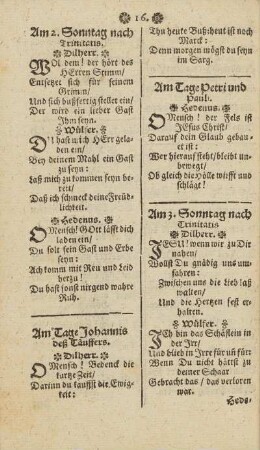 16.
Am 2. Sonntag nach
Trinitatis.
Dilherr.
Wol dem! der hört des
HErrn Stimm/
Entsetzet sich für seinem
Grimm/
Und sich bußfertig stellet ein/
Der wird ein lieber Gast
Ihm seyn.
Wülfer.
Du hast mich HErr gela-
den ein/
Bey deinem Mahl ein Gast
zu seyn:
Laß mich zu kommen seyn be-
reit/
Daß ich schmeck deine Freüd-
lichkeit.
Hedenus.
O Mensch! GOtt lässt dich
laden ein/
Du solt sein Gast und Erbe
seyn:
Ach komm mit Reu und Leid
herzu!
Du hast sonst nirgend wahre
Ruh.
Am Tage Johannis
deß Täuffers.
Dilherr.
O Mensch! Bedenck die
kurtze Zeit/
Darinn du kauffst die Ewig-
keit:
Thu heute Buß: heut ist noch
Marck:
Denn morgen mögst du seyn
im Sarg.
Am Tage Petri und
Pauli.
Hedenus.
O Mensch! der Fels ist
JEsus Christ/
Darauf dein Glaub gebau-
et ist:
Wer hierauf steht/ bleibt un-
bewegt/
Ob gleich die Hölle wüfft und
schlägt!
Am 3. Sonntag nach
Trinitatis
Dilherr.
JESU! wenn wir zu Dir
nahen/
Wollst Du gnädig uns um-
fahen:
Zwischen uns die Lieb laß
walten/
Und die Hertzen fest er-
halten.
Wülfer.
Ich bin das Schäflein in
der Irr/
Und blieb in Irre für uñ für:
Wenn Du nicht hörtst zu
deiner Schaar
Gebracht das/ das verloren
war.
Hede-